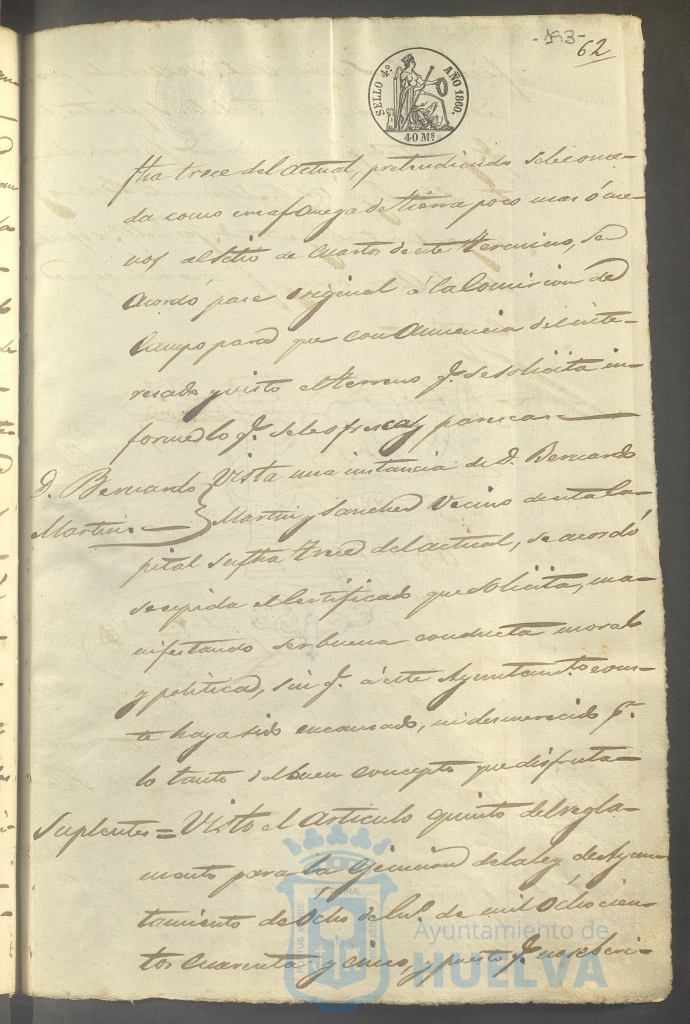 -193-
62
SELLO 4º AÑO 1860.
40 Ms
fha trece del actual, pretendiendo se le conce-
da como una fanega de tierra poco mas ó me-
nos al sitio de Cuartos de este termino, se
acordó pase original á la Comision de
Campo para que con anuencia del inte-
resado y visto el terreno q.e se solicita in-
forme lo q.e se le ofresca y paresca=
D. Bernardo
Martin=
Vista una instancia de D. Bernardo
Martin y Sanchez vecino de esta Ca-
pital su fha trece del actual, se acordó
se expida el Certificado que solicita, ma-
nifestando ser buena conducta moral
y politica, sin q.e á este Ayuntam.to cons-
te haya sido encausado, ni desmerecido p.r
lo tanto del buen concepto que disfruta=
Suplentes=
Visto el articulo quinto del regla-
mento para la Ejecucion de la ley de Ayun-
tamiento de Ocho de de mil Ochocien-
tos Cuarenta y cinco, y puesto q.e no
Ayuntamiento de
HUELVA